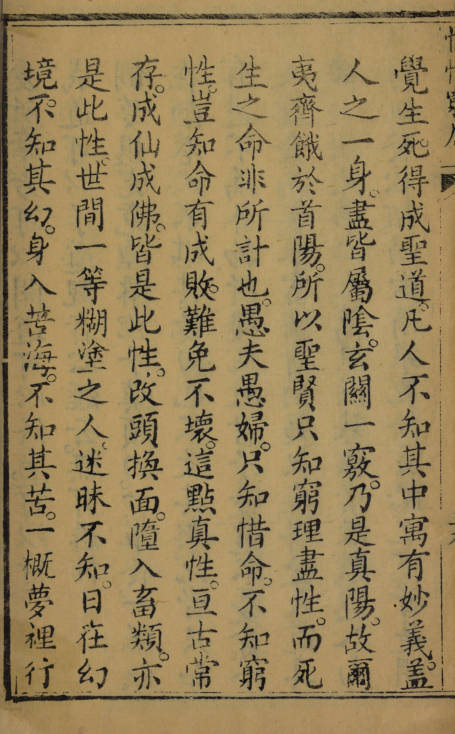 覺生死得成聖道。凡人不知其中寓有妙義。蓋
人之一身。盡皆屬陰。玄關一竅。乃是真陽。故爾
夷齊餓於首陽。所以聖賢只知窮理盡性。而死
生之命非所計也。愚夫愚婦。只知惜命。不知窮
性。豈知命有成敗。難免不壞。這點真性。亘古常
存。成仙成佛。皆是此性。改頭換面。墮入畜類。亦
是此性。世間一等糊塗之人。迷昧不知。日在幻
境。不知其幻。身入苦海。不知其苦。一概夢裡行